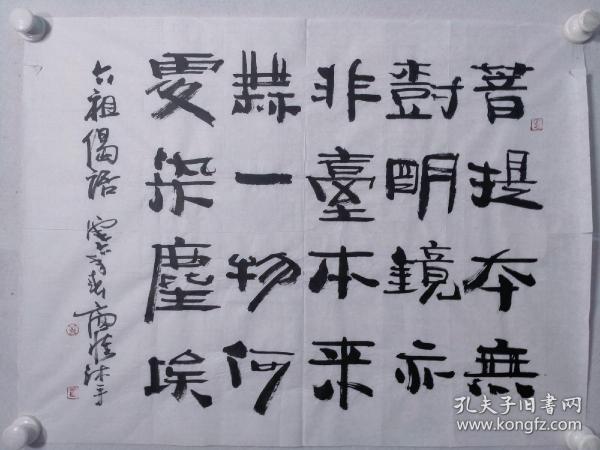 菩提本無
樹明鏡亦
非臺本来
無一物何
處染塵埃
六祖偈语
孔夫子旧书网
www.kongfz.com